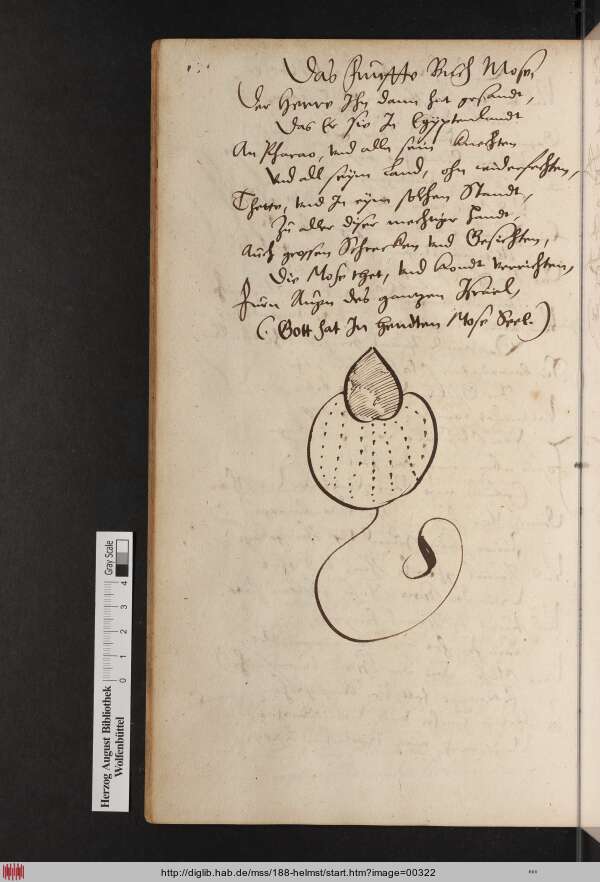 Das Fünffte Buch Mose
Der Herre Ihn dann hat gesandt,
Das Er sie In Egÿptenlandt
An Pharao, vnd alln sein knechten
Vnd all seÿm Land, ohn widerfechten,
Thette, vnd In eÿm solchen Standt,
Zu aller diser mechtiger handt,
Auch grossen Schrecken vnd Gesichten,
Die Mose thet, vnd kondt verrichten,
Fürn Augen des gantzen Israel,
(Gott hat In henden Mose Seel.)
Herzog August Bibliothek
Wolfenbüttel
Gray Scale
0 1 2 3 4
http://diglib.hab.de/mss/188-helmst/start.htm?image=00322